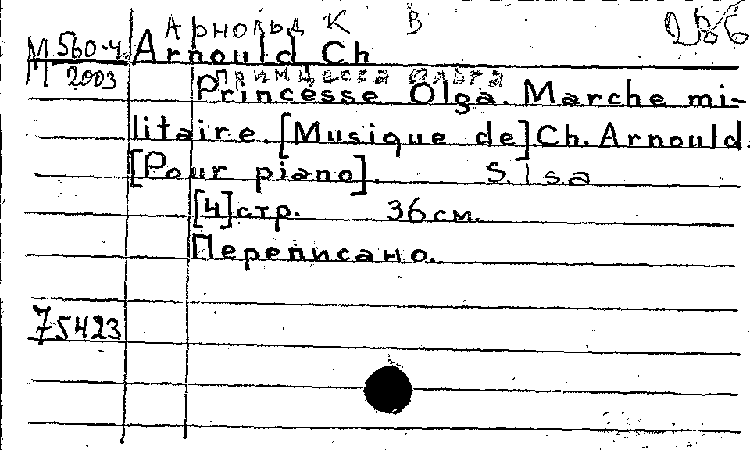 Арнольд К В
286
М 560-4 Arnould Ch
М 2003 Принцесса Ольга
Princesse Olga. Marche mi-
litaire. [Musique de] Ch. Arnould.
[Pour piano]. S. l s. a
[4] стр. 36 см.
Переписано.
75423